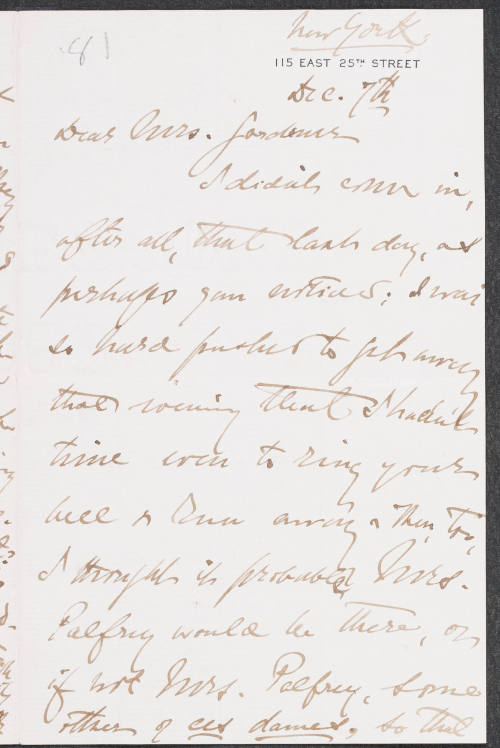 81
New York
115 EAST 25TH STREET
Dec. 7th
Dear Mrs. Gardner
I didn't come in,
after all, that last day, as
perhaps you noticed; I was
so hard pushed to get away
that evening that I hadn't
time even to ring your
bell & run away. Then, too,
I thought it probable Mrs.
Palfrey would be there, or
if not Mrs. Palfrey, some
other of ces dames, so that